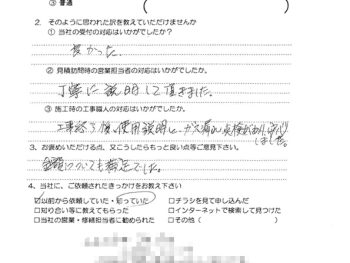 ③ 普通
2. そのように思われた訳を教えていただけませんか
① 当社の受付の対応はいかがでしたか?
良かった.
② 見積訪問時の営業担当者の対応はいかがでしたか?
丁寧に説明して頂きました.
③ 施工時の工事職人の対応はいかがでしたか?
工事終了後、使用説明と、ガス漏れ点検があり安心
しました。
3、お褒めいただける点、又こうしたらもっと良い点等ご意見下さい。
金額についても満足でした。
4、当社に、ご依頼されたきっかけをお教え下さい
☑以前から依頼していた・知っていた
□チラシを見て申し込んだ
□知り合い等に教えてもらった
□インターネットで検索して見つけた
□当社の営業・修繕担当者に勧められた
□その他(
)